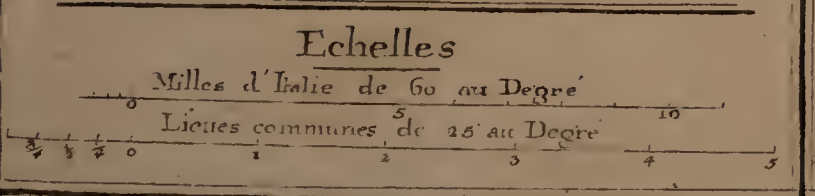 Echelles
Milles d'Italie de 60 au Degré
0 5 10
Lieües communes de 25 au Degré
3/4 1/2 1/4 0 1 2 3 4 5